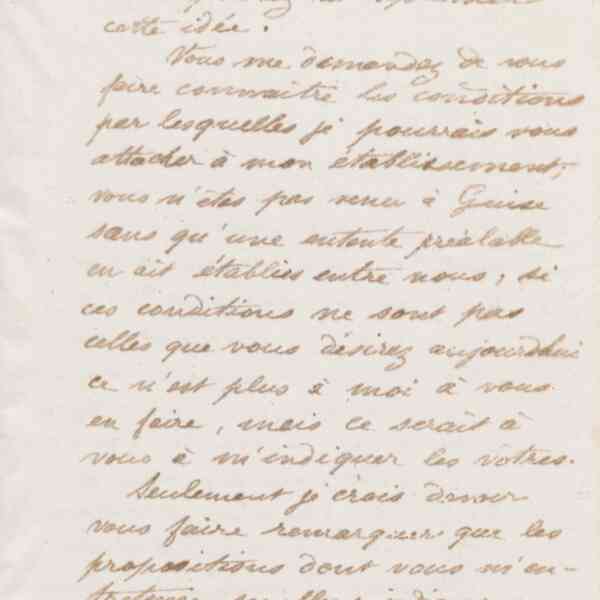 cette idée.
Vous me demandez de vous
faire connaitre les conditions
par lesquelles je pourrais vous
attacher à mon établissement,
vous n'êtes pas venu à Guise
sans qu'une entente préalable
en ait établies entre nous, si
ces conditions ne sont pas
celles que vous désirez aujourdhui
ce n'est plus à moi à vous
en faire, mais ce serait à
vous à m'indiquer les vôtres.
Seulement je crois devoir
vous faire remarquer que les
propositions dont vous m'en-